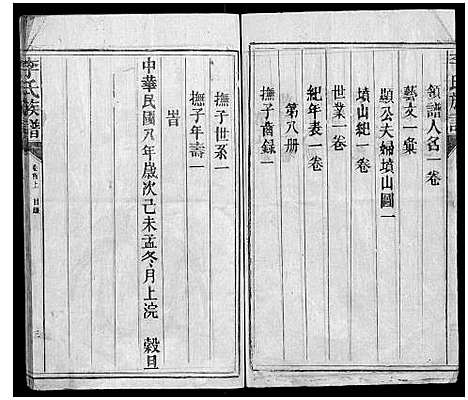 領譜人名一卷
藝文一彙
顯公夫婦墳山圖一
墳山紀一卷
世業一卷
紀年表一卷
第八册
撫子酋錄一
撫子世系一
撫子年壽一
旹
中華民國八年歲次己未孟冬月上浣 穀旦
李氏族譜
卷首上 目錄